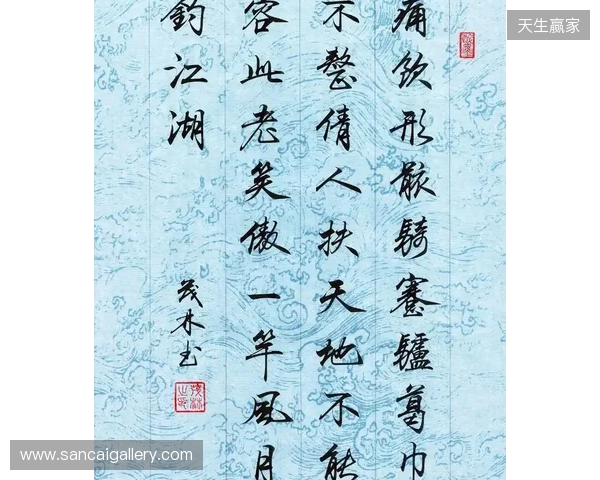 天生赢家
痛饮形骸騎蹇驢葛巾
不整倩人扶天地不能
容此老笑傲一竿風月
釣江湖
茂林书
www.sancaigallery.com